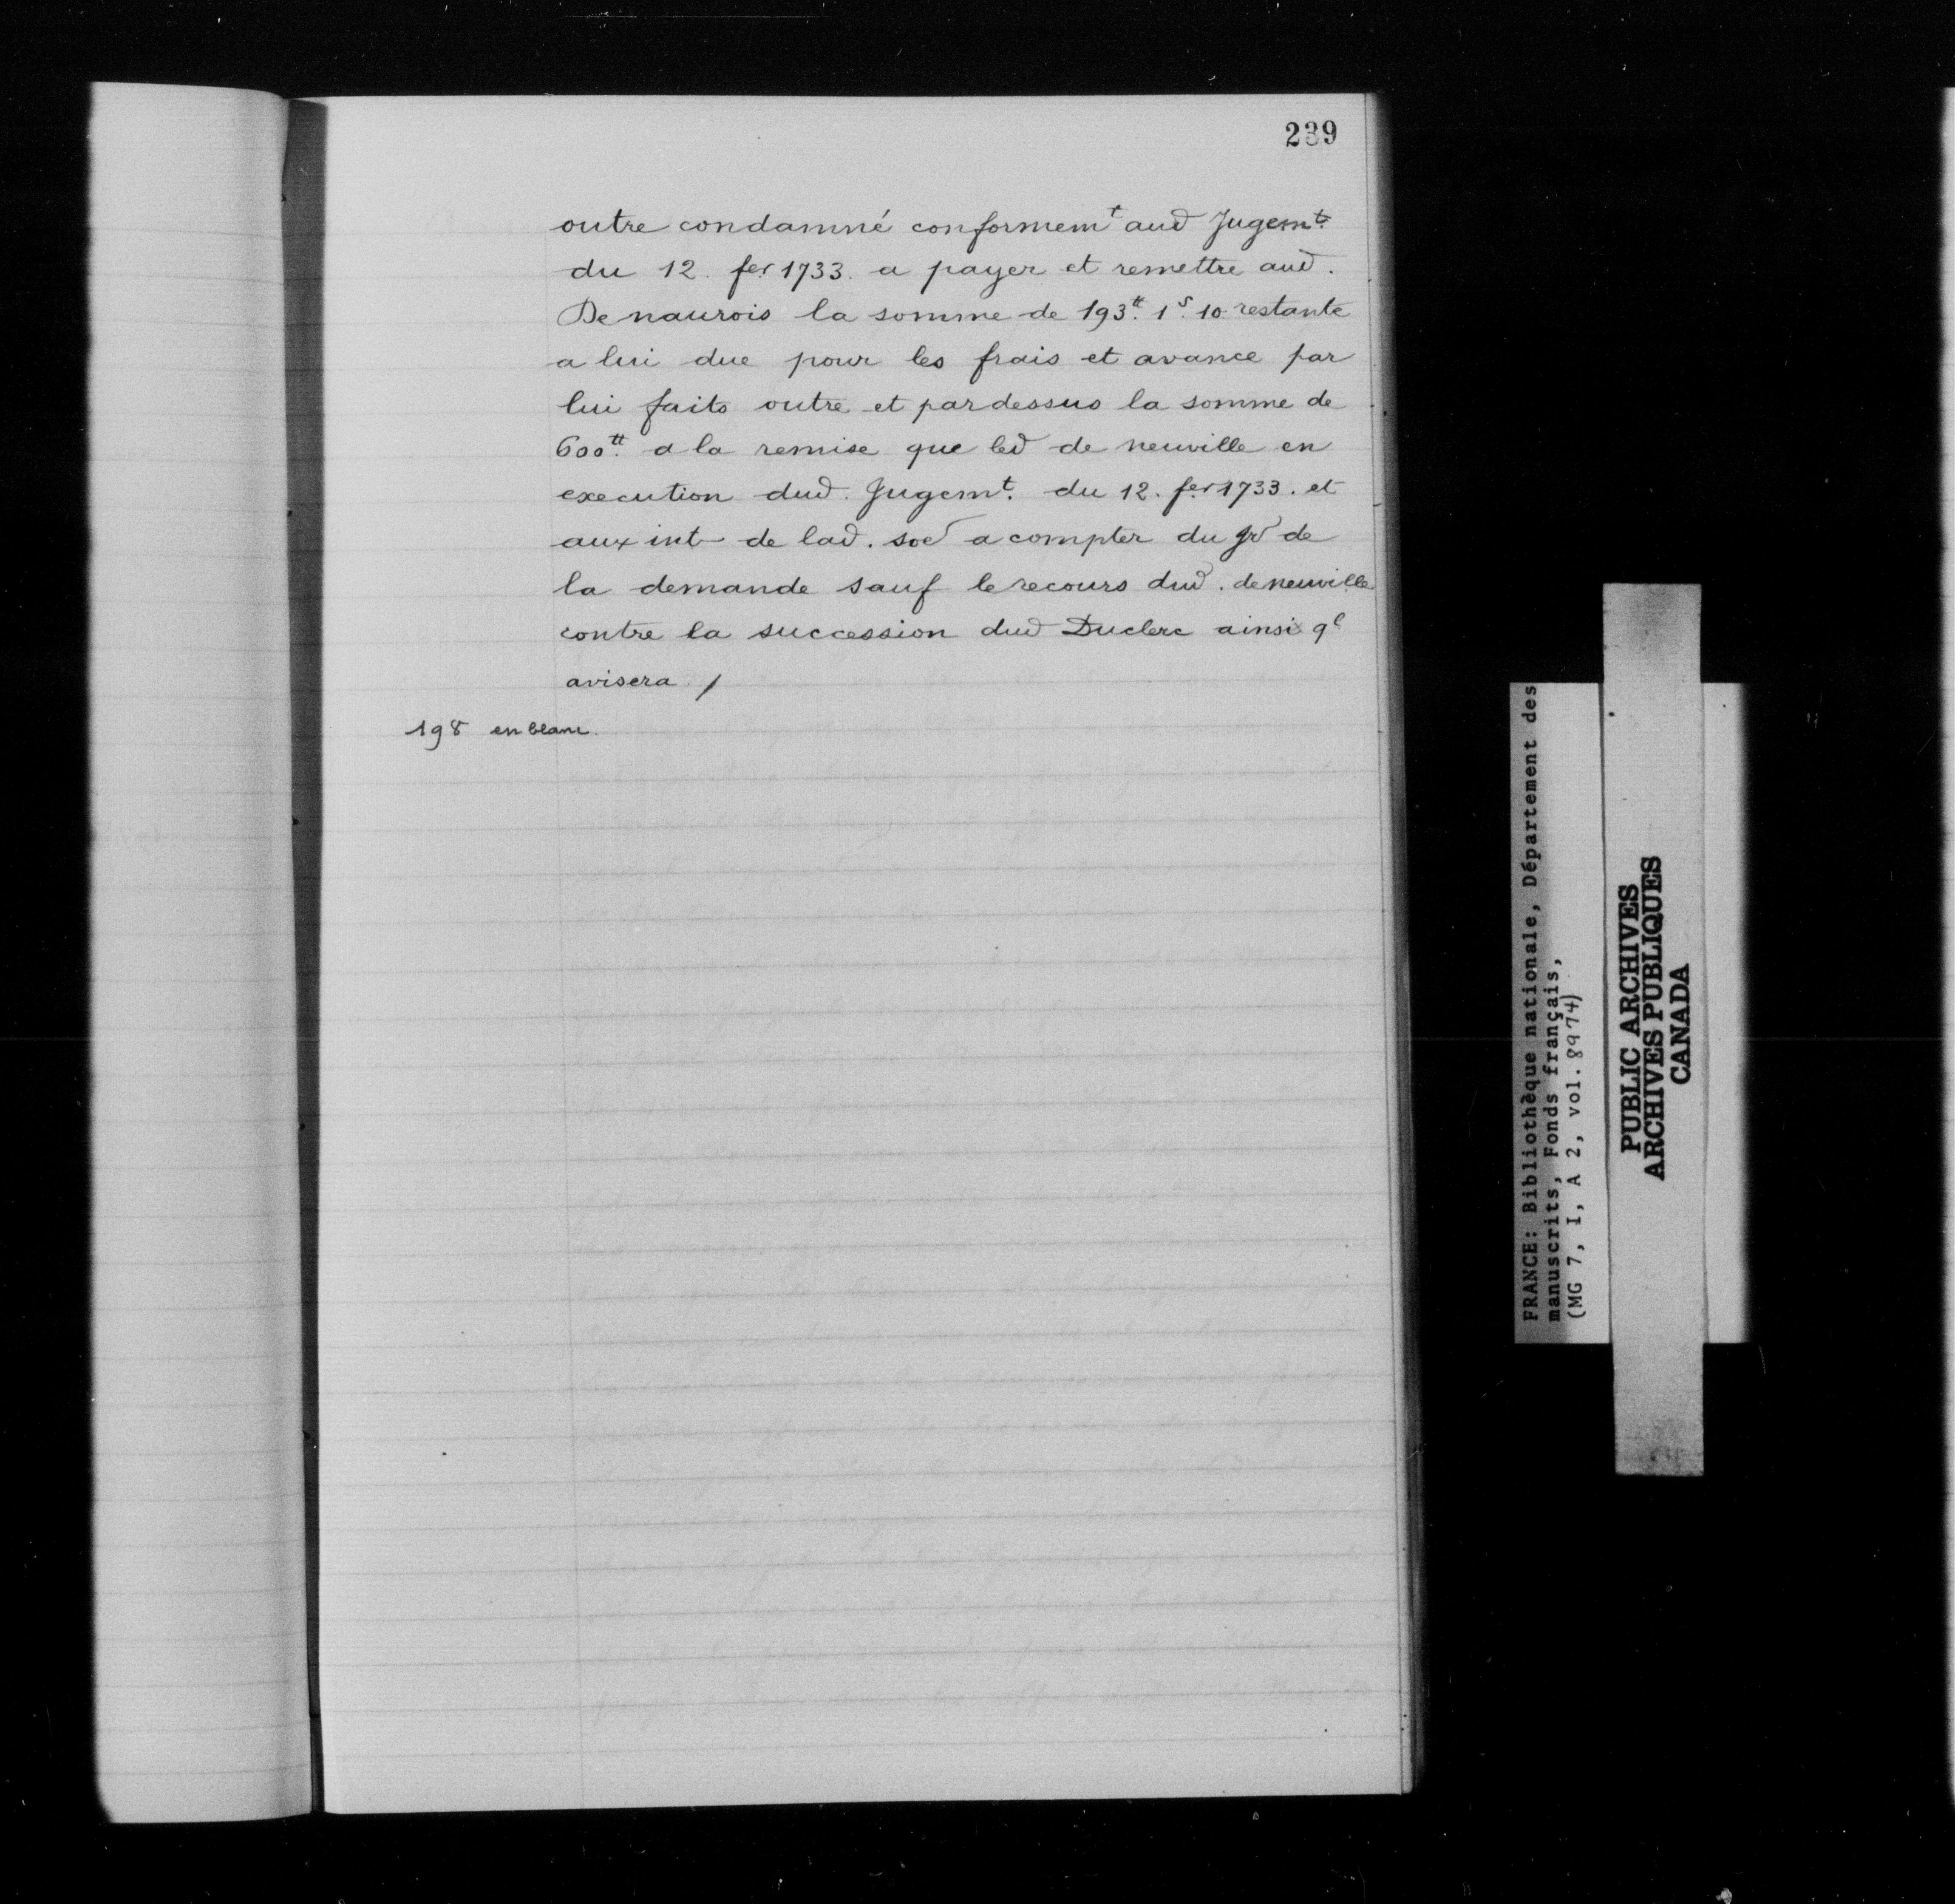 239
outre condamné conformemt aud Jugemt.
du 12. fer 1733. a payer et remettre aud.
De naurois la somme de 193tt. 1s. 10 restante
a lui due pour les frais et avance par
lui faits outre et pardessus la somme de
600tt. a la remise que led de neuville en
execution dud. Jugemt. du 12. fer 1733. et
aux int de lad. soe a compter du Jr de
la demande sauf le recours dud. de neuville
contre la succession dud Duclerc ainsi ql
avisera /
198 en blanc.
FRANCE: Bibliothèque nationale, Département des
manuscrits, Fonds français,
(MG 7, I, A 2, vol. 8974)
PUBLIC ARCHIVES
ARCHIVES PUBLIQUES
CANADA